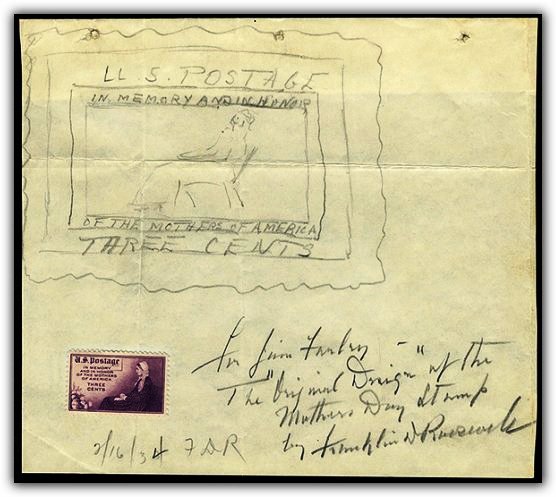 U. S. POSTAGE
IN MEMORY AND IN HONOR
OF THE MOTHERS OF AMERICA
THREE CENTS
U.S. Postage
IN MEMORY
AND IN HONOR
OF THE MOTHERS
OF AMERICA
THREE
CENTS
For Jim Farley –
The "Original Design" of the
Mothers Day Stamp
by Franklin D Roosevelt
2/16/34 FDR